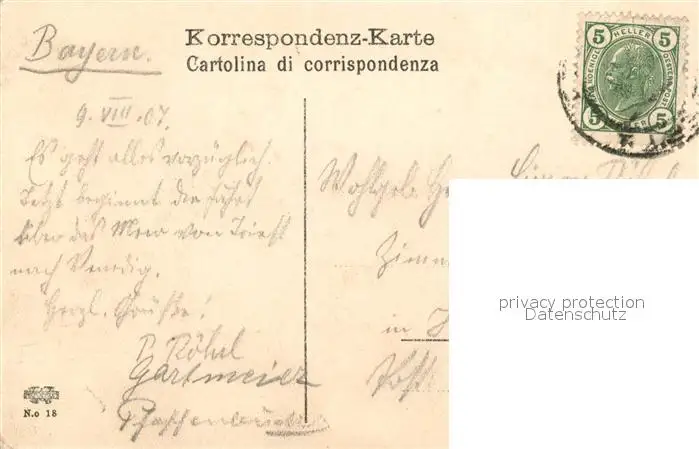 Bayern.
Korrespondenz-Karte
Cartolina di corrispondenza
5 HELLER 5
5 HELLER 5
9. VIII. 07.
Es geht alles vorzüglich.
Jetzt beginnt die Fahrt
über das Meer von Triest
nach Venedig.
Herzl. Grüße!
P. Röhrl
Gartmeier
Wohlgeb.
in
Post
N.o 18
privacy protection
Datenschutz